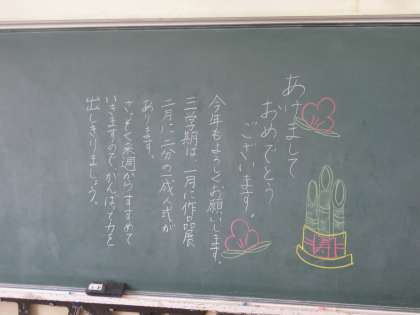 あけまして
おめでとう
ございます。
今年もよろしくお願いします。
三学期は、一月に作品展
二月に二分の一成人式が
あります。
さっそく来週からすすめて
いきますのでがんばって力を
出しきりましょう。